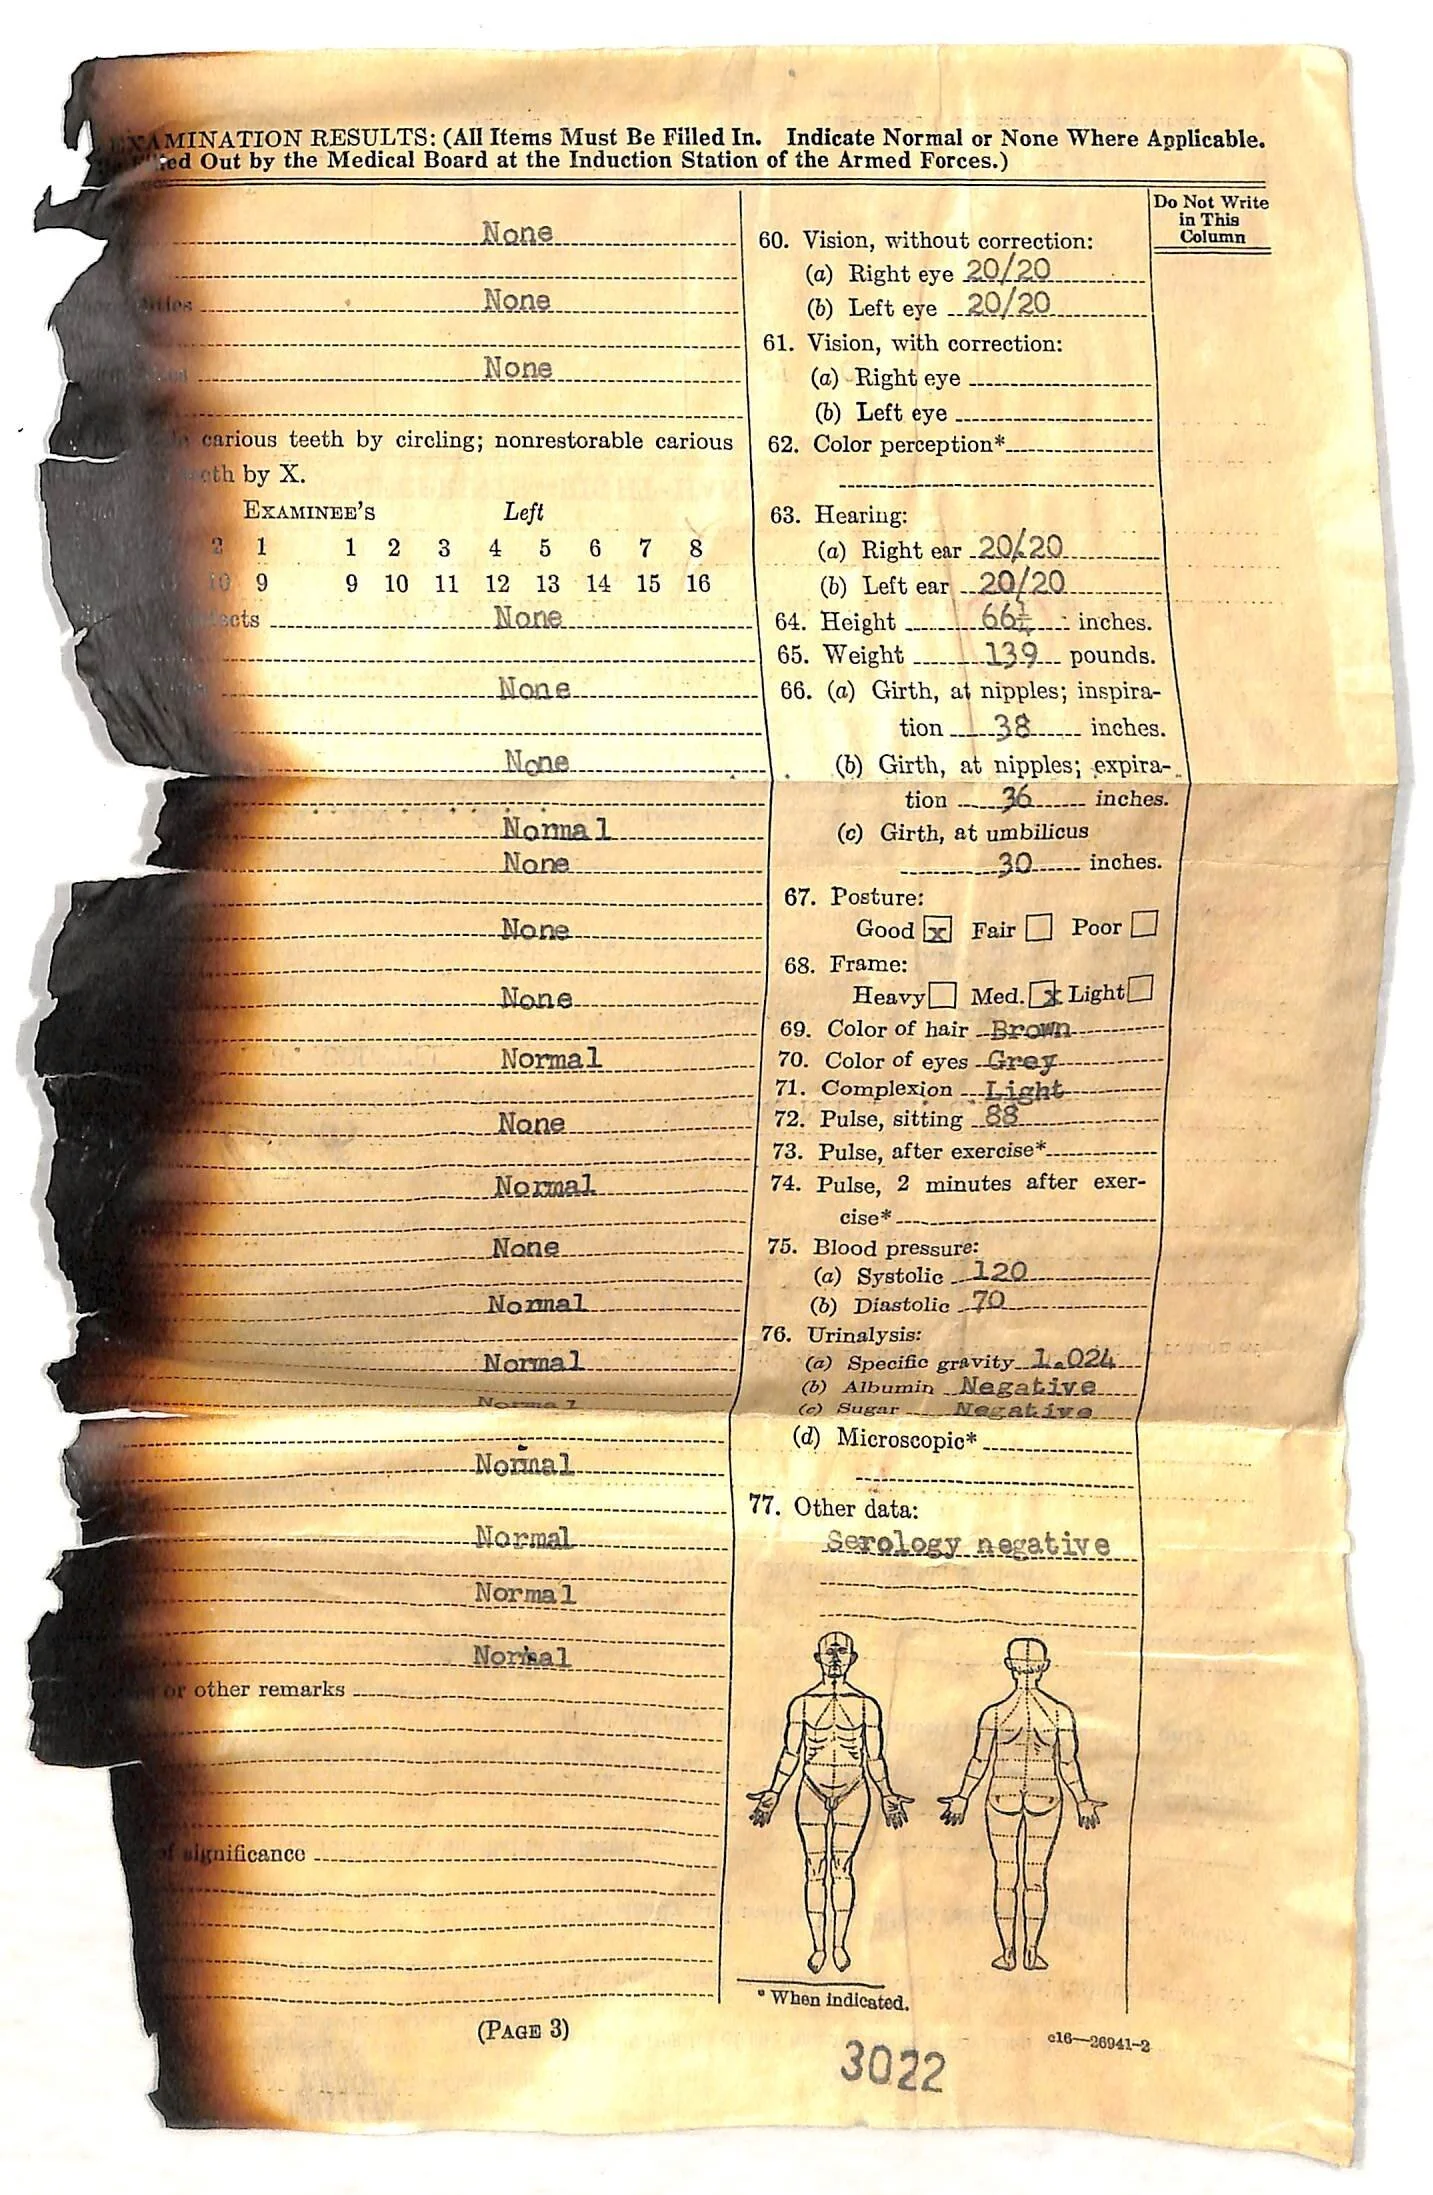 EXAMINATION RESULTS: (All Items Must Be Filled In. Indicate Normal or None Where Applicable.
Out by the Medical Board at the Induction Station of the Armed Forces.)
None
None
None
carious teeth by circling; nonrestorable carious
teeth by X.
EXAMINEE'S Left
2 1 1 2 3 4 5 6 7 8
10 9 9 10 11 12 13 14 15 16
None
None
None
Normal
None
None
None
Normal
None
Normal
None
Normal
Normal
Normal
Normal
Normal
Normal
Normal
or other remarks
of significance
(PAGE 3)
Do Not Write
in This
Column
60. Vision, without correction:
(a) Right eye 20/20
(b) Left eye 20/20
61. Vision, with correction:
(a) Right eye
(b) Left eye
62. Color perception*
63. Hearing:
(a) Right ear 20/20
(b) Left ear 20/20
64. Height 66¼ inches.
65. Weight 139 pounds.
66. (a) Girth, at nipples; inspira-
tion 38 inches.
(b) Girth, at nipples; expira-
tion 36 inches.
(c) Girth, at umbilicus
30 inches.
67. Posture:
Good x Fair Poor
68. Frame:
Heavy Med. x Light
69. Color of hair Brown
70. Color of eyes Grey
71. Complexion Light
72. Pulse, sitting 88
73. Pulse, after exercise*
74. Pulse, 2 minutes after exer-
cise*
75. Blood pressure:
(a) Systolic 120
(b) Diastolic 70
76. Urinalysis:
(a) Specific gravity 1.024
(b) Albumin Negative
(c) Sugar Negative
(d) Microscopic*
77. Other data:
Serology negative
* When indicated.
c16—26941-2
3022